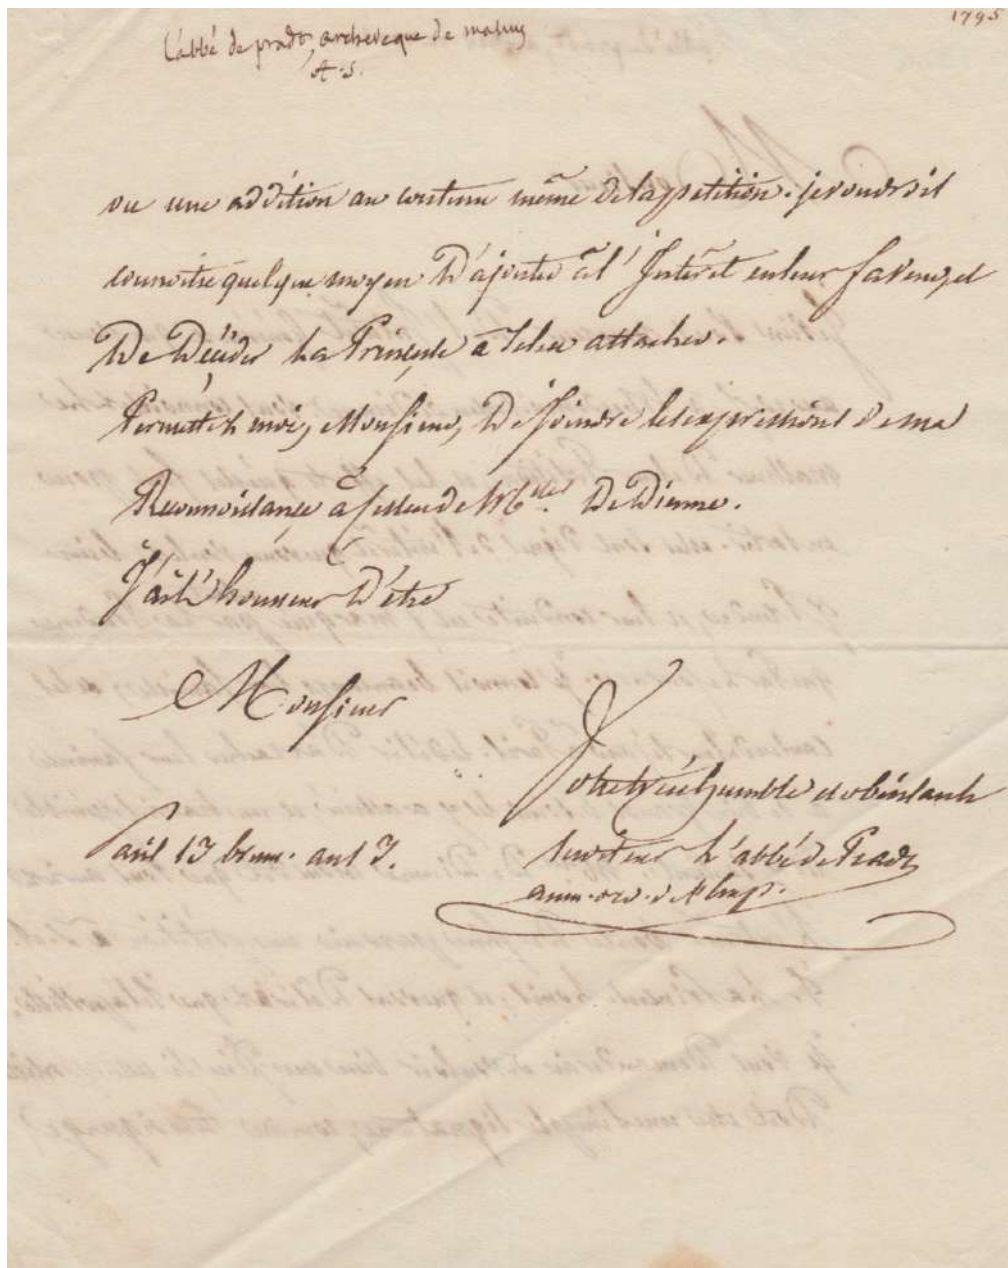 1795
L'abbé de pradt, archeveque de malines
A. S.
ou une addition au contenu même de la petition. je voudrois
connoitre quelque moyen D'ajouter à l'Jntérêt en leur faveur, et
De Décider La Princesse à Se les attacher.
Permettez moi, Monsieur, De joindre les expressions de ma
Reconnoissance à Celles de M.elles De Dienne.
J'ai l'honneur D'être
Monsieur
Votre très humble et obéissant
Serviteur L'abbé de Pradt
aum. ord. de l'emp.
Paris 13 brum. an 13.